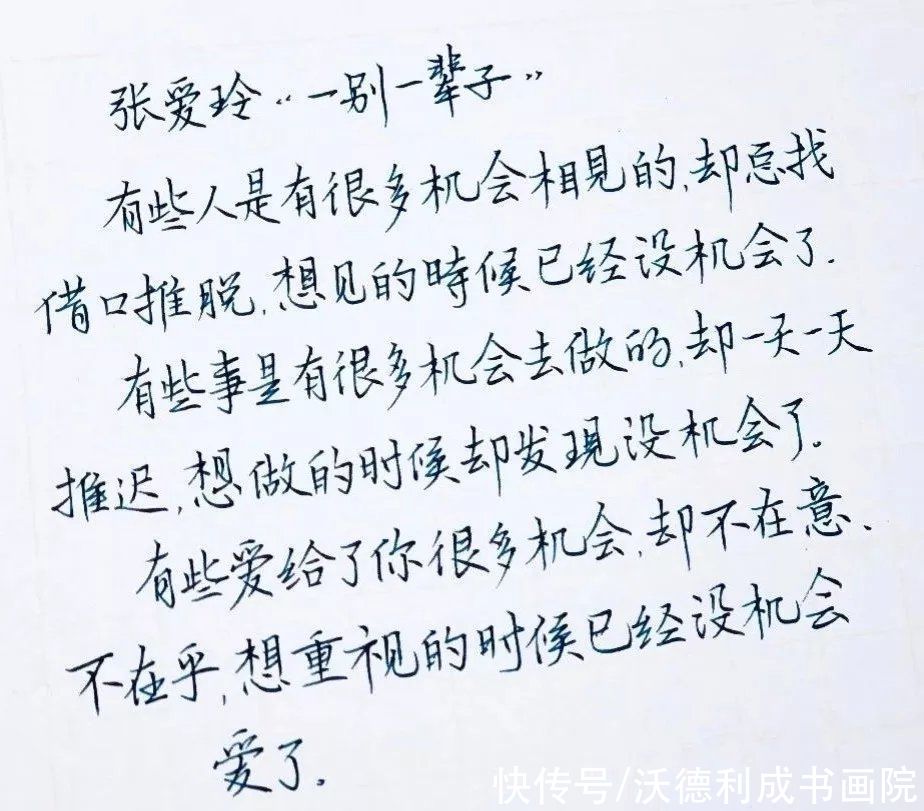 张爱玲“一别一辈子”
有些人是有很多机会相見的,却总找
借口推脱,想见的時候已经没机会了.
有些事是有很多机会去做的,却一天一天
推迟,想做的时候却发現没机会了.
有些爱给了你很多机会,却不在意.
不在乎,想重视的时候已经没机会
爱了.
快传号/沃德利成书画院